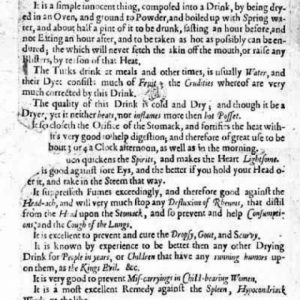 It is a simple innocent thing, composed into a Drink, by being dry-
ed in an Oven, and ground to Powder, and boiled up with Spring wa-
ter, and about half a pint of it to be drunk, fasting an hour before, and
not Eating an hour after, and to be taken as hot as possibly can be en-
dured; the which will never fetch the skin off the mouth, or raise any
Blisters, by reason of that Heat.
The Turks drink at meals and other times, is usually Water, and
their Dyet consists much of Fruit, the Crudities whereof are very
much corrected by this Drink.
The quality of this Drink is cold and Dry; and though it be a
Dryer, yet it neither heats, nor inflames more then hot Posset.
It so closeth the Orifice of the Stomack, and fortifies the heat with-
it's very good to help digestion, and therefore of great use to be
bout 3 or 4 a Clock afternoon, as well as in the morning.
quickens the Spirits, and makes the Heart Lightsome.
is good against sore Eys, and the better if you hold your Head o'er
it, and take in the Steem that way.
It suppresseth Fumes exceedingly, and therefore good against the
Head-ach, and will very much stop any Defluxion of Rheums, that distil
from the Head upon the Stomack, and so prevent and help Consumpti-
ons; and the Cough of the Lungs.
It is excellent to prevent and cure the Dropsy, Gout, and Scurvy.
It is known by experience to be better then any other Drying
Drink for People in years, or Children that have any running humors up-
on them, as the Kings Evil. &c.
It is very good to prevent Mis-carryings in Child-bearing Women.
It is a most excellent Remedy against the Spleen, Hypocondriack